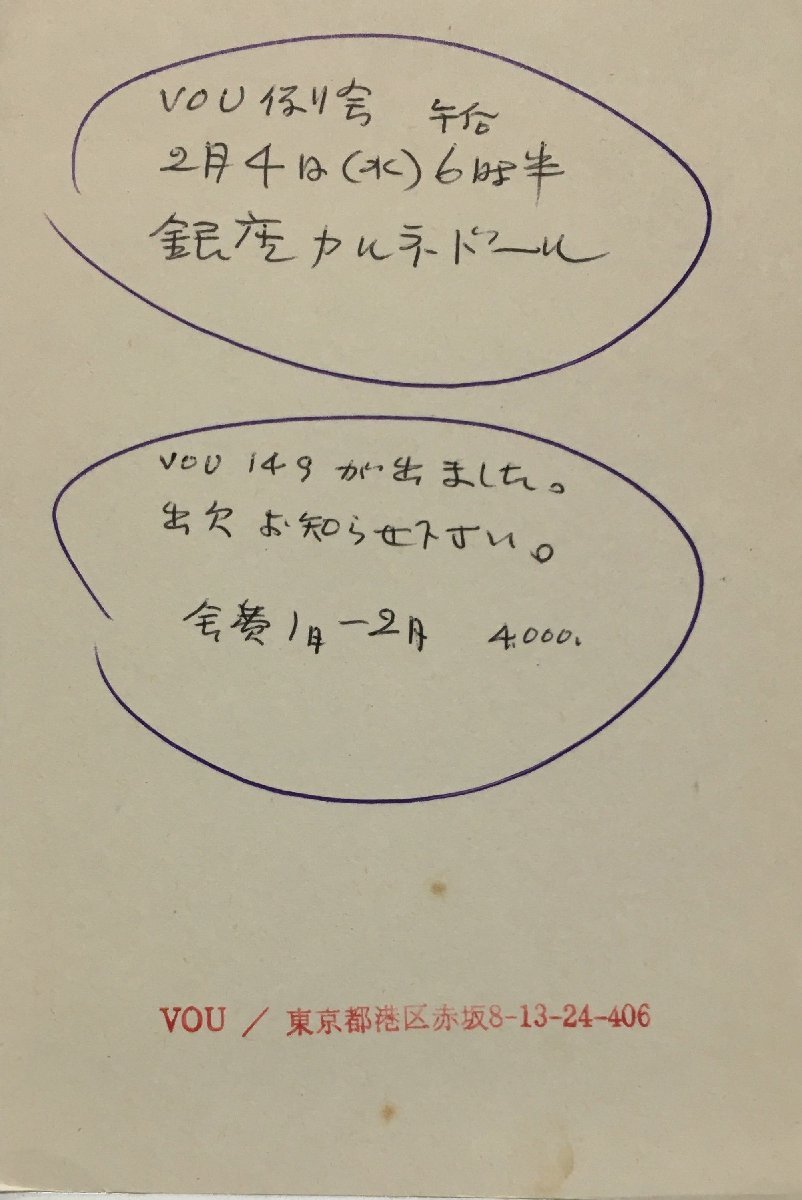 VOU 例会 午后
2月4日(水)6時半
銀座カルネドール
VOU 149 が出ました。
出欠お知らせ下さい。
会費1月-2月 4,000.
VOU / 東京都港区赤坂8-13-24-406